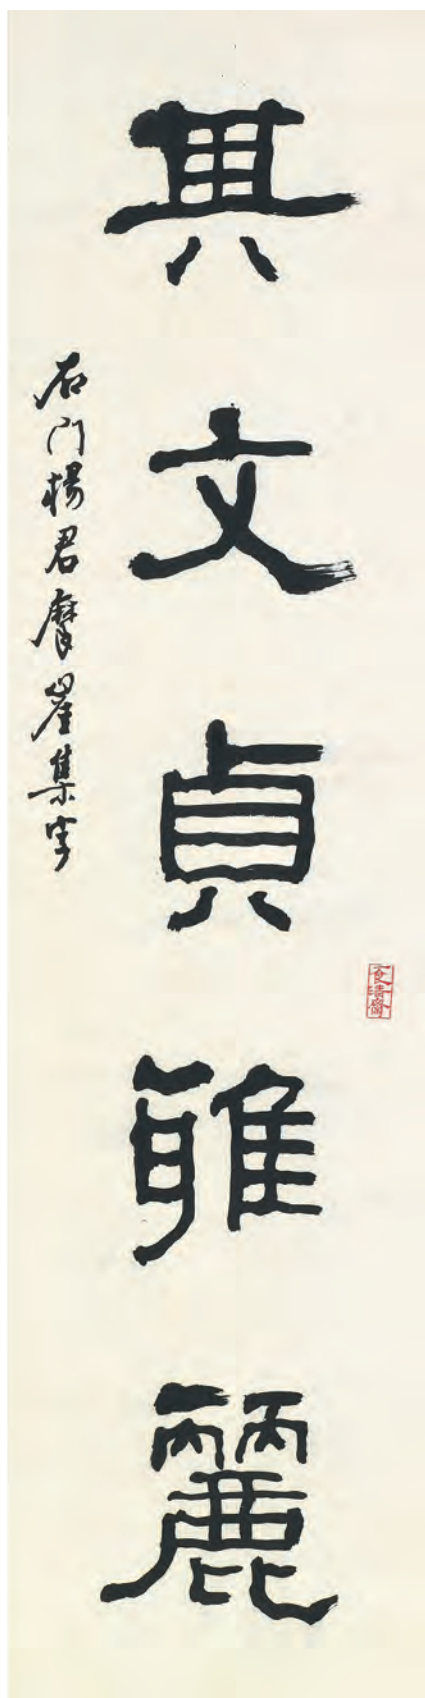 典文貞雅麗
石門楊君摩崖集字